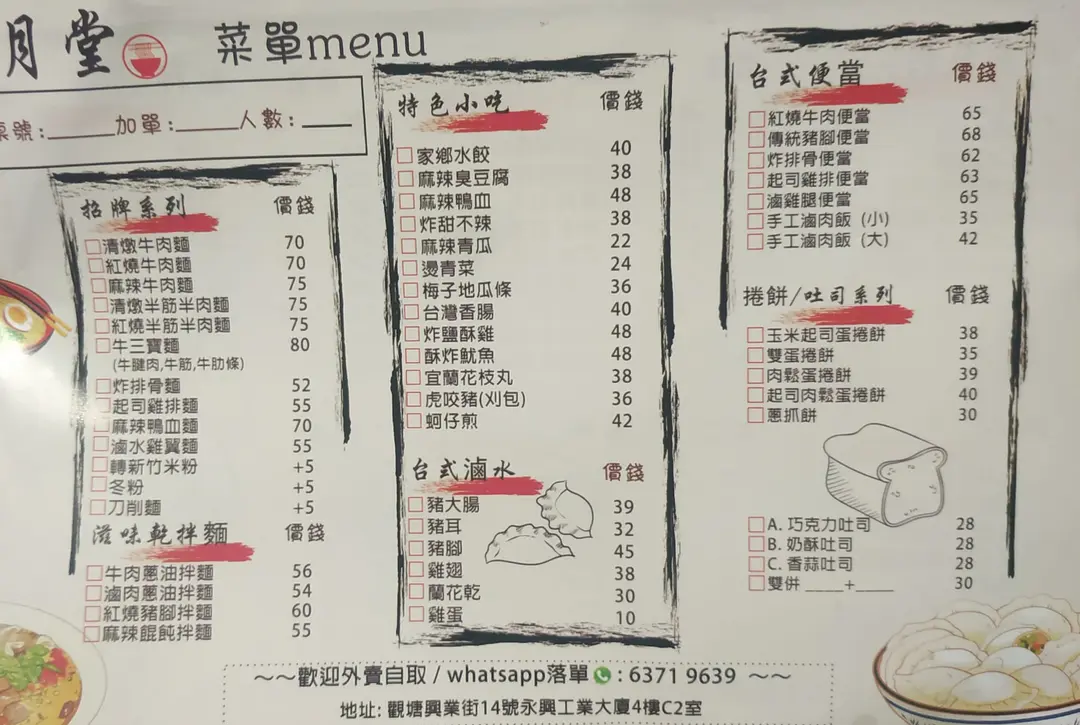 月堂
菜單menu
號:______加單:______人數:_____
招牌系列 價錢
清燉牛肉麵 70
紅燒牛肉麵 70
麻辣牛肉麵 75
清燉半筋半肉麵 75
紅燒半筋半肉麵 75
牛三寶麵 80
(牛腱肉,牛筋,牛肋條)
炸排骨麵 52
起司雞排麵 55
麻辣鴨血麵 70
滷水雞翼麵 55
轉新竹米粉 +5
冬粉 +5
刀削麵 +5
滋味乾拌麵 價錢
牛肉蔥油拌麵 56
滷肉蔥油拌麵 54
紅燒豬腳拌麵 60
麻辣餛飩拌麵 55
特色小吃 價錢
家鄉水餃 40
麻辣臭豆腐 38
麻辣鴨血 48
炸甜不辣 38
麻辣青瓜 22
燙青菜 24
梅子地瓜條 36
台灣香腸 40
炸鹽酥雞 48
酥炸魷魚 48
宜蘭花枝丸 38
虎咬豬(刈包) 36
蚵仔煎 42
台式滷水 價錢
豬大腸 39
豬耳 32
豬腳 45
雞翅 38
蘭花乾 30
雞蛋 10
台式便當 價錢
紅燒牛肉便當 65
傳統豬腳便當 68
炸排骨便當 62
起司雞排便當 63
滷雞腿便當 65
手工滷肉飯 (小) 35
手工滷肉飯 (大) 42
捲餅/吐司系列 價錢
玉米起司蛋捲餅 38
雙蛋捲餅 35
肉鬆蛋捲餅 39
起司肉鬆蛋捲餅 40
蔥抓餅 30
A. 巧克力吐司 28
B. 奶酥吐司 28
C. 香蒜吐司 28
雙併 ____+____ 30
~~歡迎外賣自取 / whatsapp落單 : 6371 9639 ~~
地址: 觀塘興業街14號永興工業大廈4樓C2室